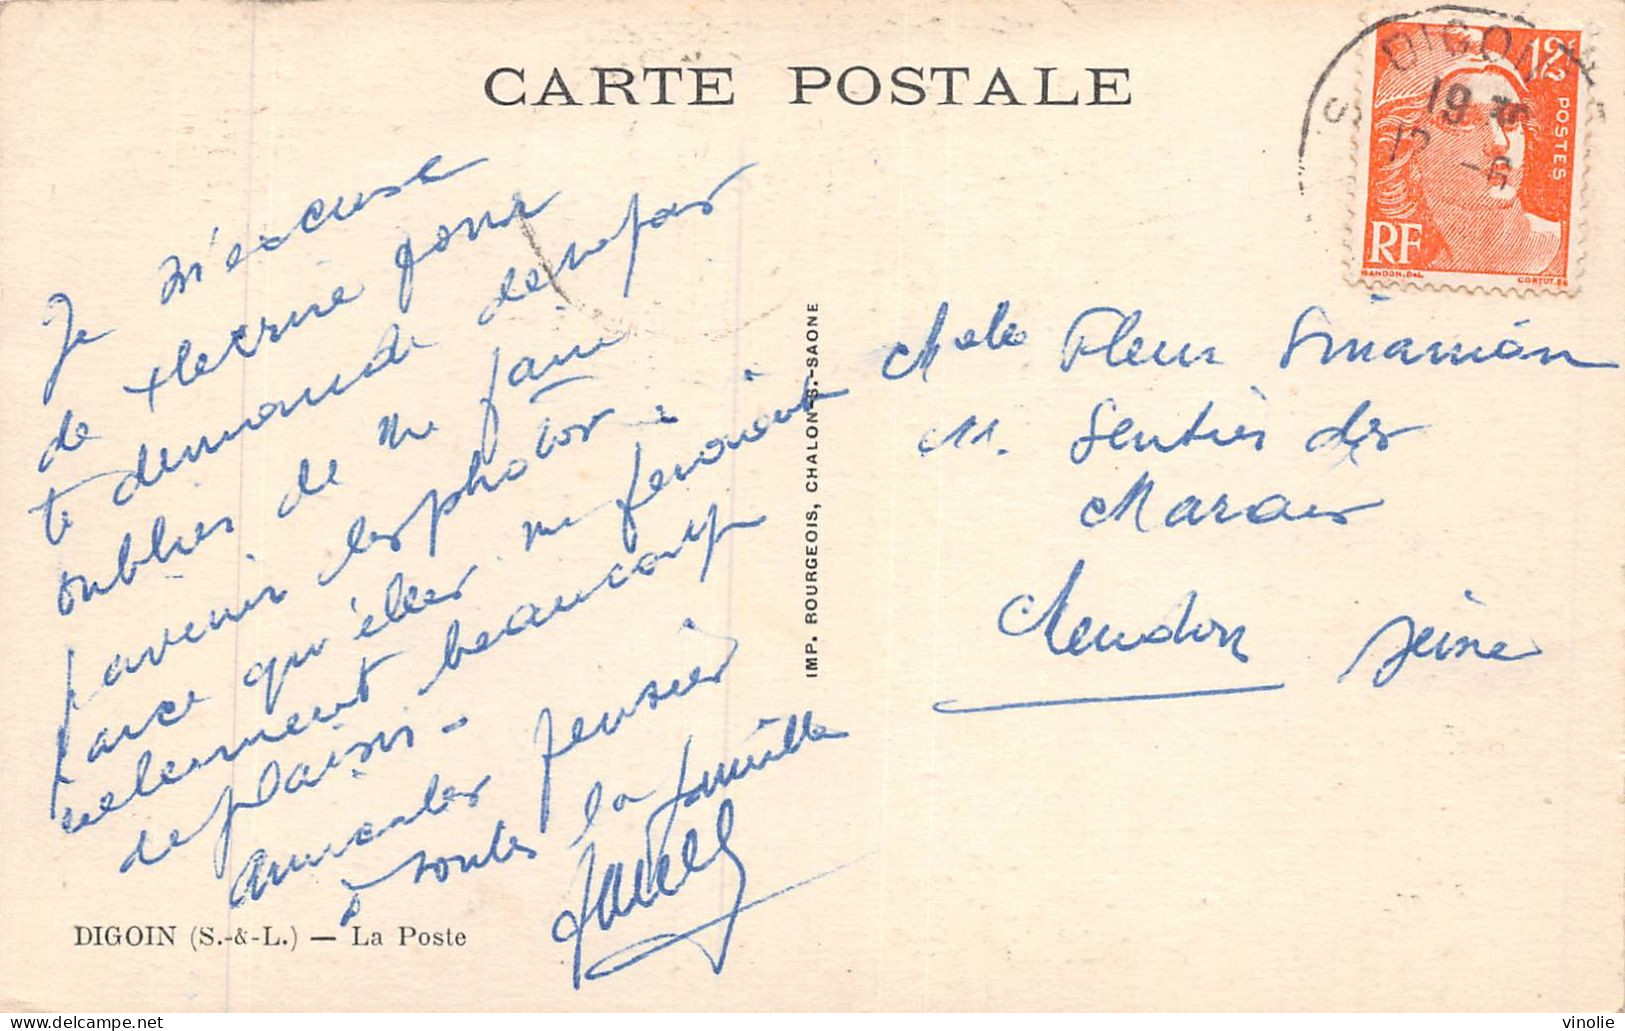 CARTE POSTALE
Je m'excuse
de t'ecrire pour
te demande de ne pas
oublier de me faire
parvenir les photos
parce qu'elles me feroient
velement beaucoup
de plaisir -
Amicales pensier
à toutes la famille
DIGOIN (S.-&-L.) — La Poste
IMP. BOURGEOIS, CHALON-S.-SAONE
DIGOIN
19
12F
POSTES
RF
GANDON. DEL.
CORTOT. SC
Melle Fleur
11. Sentier des
Marais
Meudon Seine
delcampe.net
vinolie